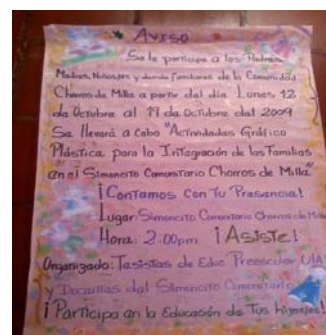 AVISO
Se le participa a los Padres,
Madres, Niños/as y demás familiares de la Comunidad
Chorros de Milla a partir del día Lunes 12
de Octubre al 19 de Octubre del 2009
Se llevará a Cabo "Actividades Gráfico
Plástica para la Integración de las Familias
en el Simoncito Comunitario Chorros de Milla"
¡Contamos Con Tu Presencia!
Lugar: Simoncito Comunitario Chorros de Milla
Hora: 2:00pm ¡Asiste!
Organizado: Tesistas de Educ Preescolar ULA
y Docentes del Simoncito Comunitario
¡Participa en la Educación de Tus hijos/as!